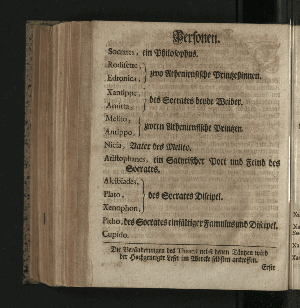 Personen.
Socrates, ein Philosophus.
Rodisette,
Edronica, } zwo Atheniensische Printzeßinnen.
Xantippe,
Amitta, } des Socrates beyde Weiber.
Melito,
Antippo, } zween Atheniensische Printzen.
Nicia, Vater des Melito.
Aristophanes, ein Satyrischer Poet und Feind des
Socrates.
Alcibiades,
Plato,
Xenophon, } des Socrates Discipel.
Pitho, des Socrates einfältiger Famulus und Discipel.
Cupido.
Die Veränderungen des Theatri nebst denen Täntzen wird
der Hochgeneigte Leser im Wercke selbsten antreffen.
Erste